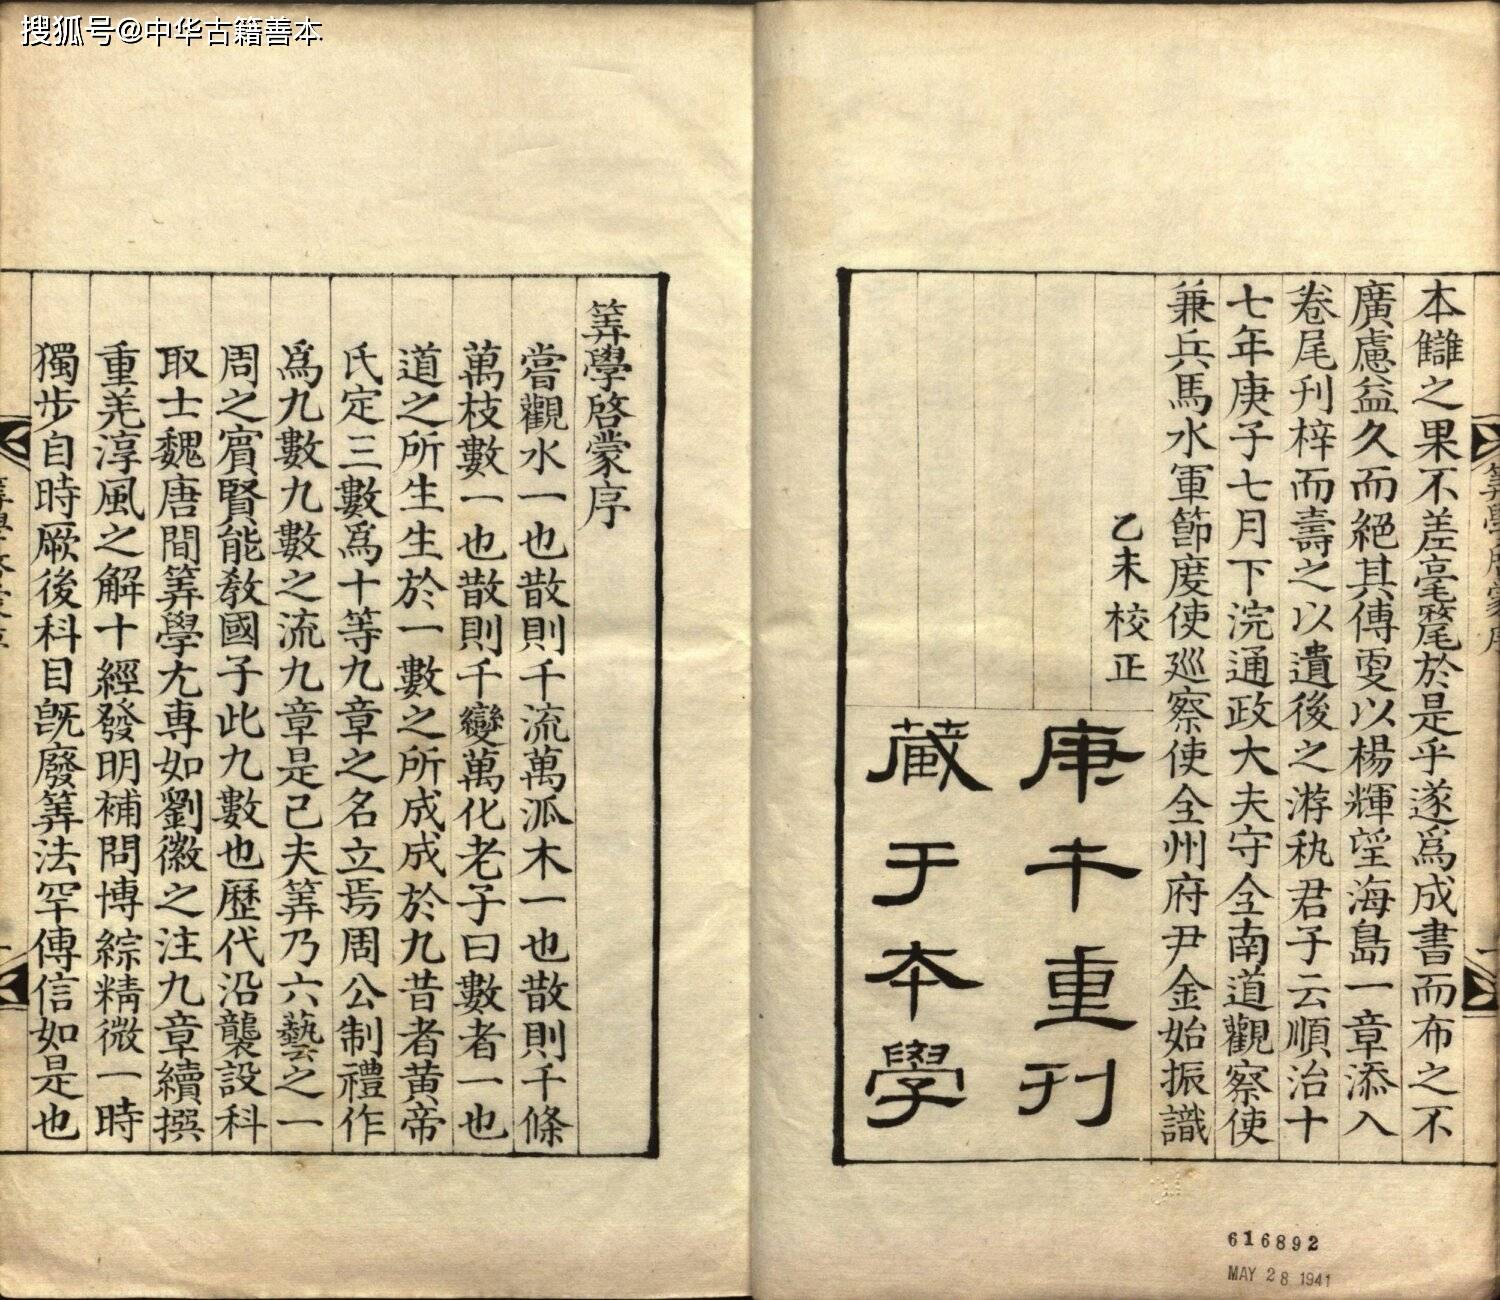 搜狐号@中华古籍善本
本讎之果不差毫氂於是乎遂爲成書而布之不
廣慮益久而絕其傳更以楊輝望海島一章添入
卷尾刊梓而壽之以遺後之游秇君子云順治十
七年庚子七月下浣通政大夫守全南道觀察使
兼兵馬水軍節度使廵察使全州府尹金始振識
乙未校正
庚午重刊
藏于本學
筭學啓蒙序
嘗觀水一也散則千流萬派木一也散則千條
萬枝數一也散則千變萬化老子曰數者一也
道之所生生於一數之所成成於九昔者黄帝
氏定三數爲十等九章之名立焉周公制禮作
爲九數九數之流九章是已夫筭乃六藝之一
周之賔賢能敎國子此九數也歷代沿襲設科
取士魏唐間筭學尢専如劉徽之注九章續撰
重差淳風之解十經發明補問博綜精微一時
獨步自時厥後科目旣廢筭法罕傳信如是也
616892
MAY 28 1941